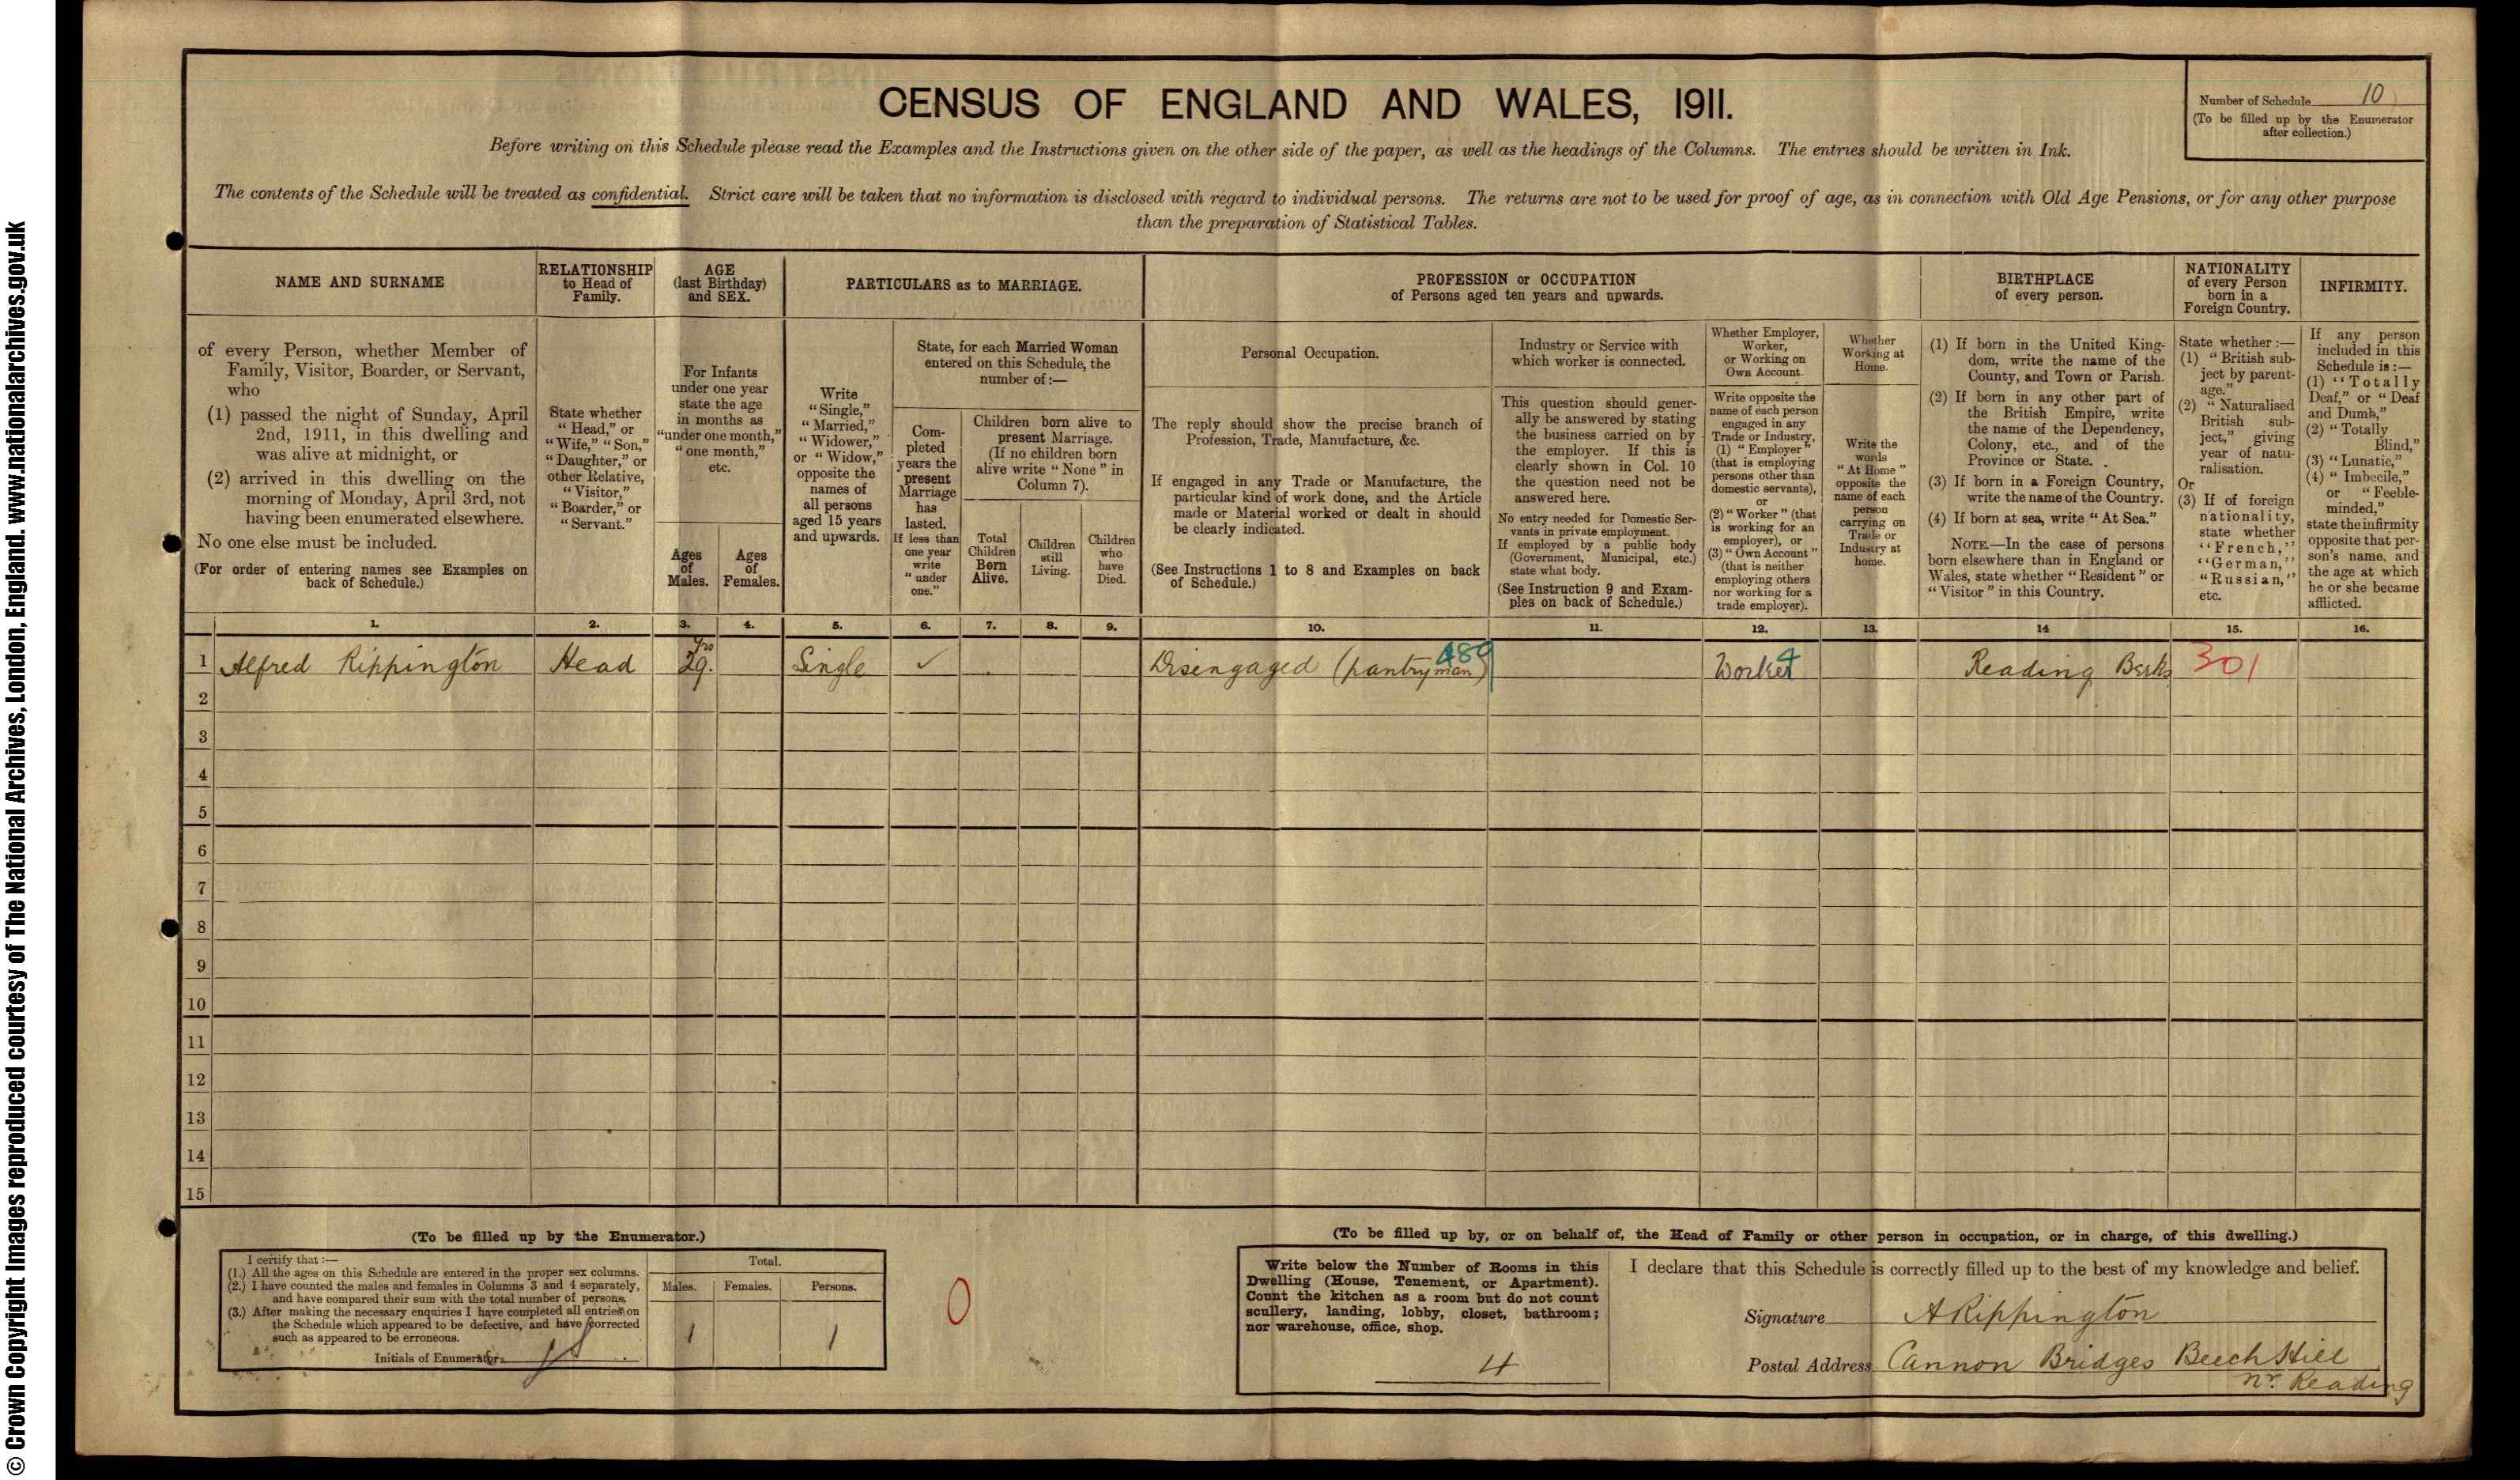 © Crown Copyright Images reproduced courtesy of The National Archives, London, England. www.nationalarchives.gov.uk
CENSUS OF ENGLAND AND WALES, 1911.
Number of Schedule 10
(To be filled up by the Enumerator
after collection.)
Before writing on this Schedule please read the Examples and the Instructions given on the other side of the paper, as well as the headings of the Columns. The entries should be written in Ink.
The contents of the Schedule will be treated as confidential. Strict care will be taken that no information is disclosed with regard to individual persons. The returns are not to be used for proof of age, as in connection with Old Age Pensions, or for any other purpose
than the preparation of Statistical Tables.
NAME AND SURNAME
of every Person, whether Member of
Family, Visitor, Boarder, or Servant,
who
(1) passed the night of Sunday, April
2nd, 1911, in this dwelling and
was alive at midnight, or
(2) arrived in this dwelling on the
morning of Monday, April 3rd, not
having been enumerated elsewhere.
No one else must be included.
(For order of entering names see Examples on
back of Schedule.)
RELATIONSHIP
to Head of
Family.
State whether
"Head," or
"Wife," "Son,"
"Daughter," or
other Relative,
"Visitor,"
"Boarder," or
"Servant."
AGE
(last Birthday)
and SEX.
For Infants
under one year
state the age
in months as
"under one month,"
"one month,"
etc.
Ages
of
Males.
Ages
of
Females.
PARTICULARS as to MARRIAGE.
Write
"Single,"
"Married,"
"Widower,"
or "Widow,"
opposite the
names of
all persons
aged 15 years
and upwards.
State, for each Married Woman
entered on this Schedule, the
number of:—
Com-
pleted
years the
present
Marriage
has
lasted.
If less than
one year
write
"under
one."
Children born alive to
present Marriage.
(If no children born
alive write "None" in
Column 7).
Total
Children
Born
Alive.
Children
still
Living.
Children
who
have
Died.
PROFESSION or OCCUPATION
of Persons aged ten years and upwards.
Personal Occupation.
The reply should show the precise branch of
Profession, Trade, Manufacture, &c.
If engaged in any Trade or Manufacture, the
particular kind of work done, and the Article
made or Material worked or dealt in should
be clearly indicated.
(See Instructions 1 to 8 and Examples on back
of Schedule.)
Industry or Service with
which worker is connected.
This question should gener-
ally be answered by stating
the business carried on by
the employer. If this is
clearly shown in Col. 10
the question need not be
answered here.
No entry needed for Domestic Ser-
vants in private employment.
If employed by a public body
(Government, Municipal, etc.)
state what body.
(See Instruction 9 and Exam-
ples on back of Schedule.)
Whether Employer,
Worker,
or Working on
Own Account.
Write opposite the
name of each person
engaged in any
Trade or Industry,
(1) "Employer"
(that is employing
persons other than
domestic servants),
or
(2) "Worker" (that
is working for an
employer), or
(3) "Own Account"
(that is neither
employing others
nor working for a
trade employer).
Whether
Working at
Home.
Write the
words
"At Home"
opposite the
name of each
person
carrying on
Trade or
Industry at
home.
BIRTHPLACE
of every person.
(1) If born in the United King-
dom, write the name of the
County, and Town or Parish.
(2) If born in any other part of
the British Empire, write
the name of the Dependency,
Colony, etc., and of the
Province or State.
(3) If born in a Foreign Country,
write the name of the Country.
(4) If born at sea, write "At Sea."
NOTE.—In the case of persons
born elsewhere than in England or
Wales, state whether "Resident" or
"Visitor" in this Country.
NATIONALITY
of every Person
born in a
Foreign Country.
State whether:—
(1) "British sub-
ject by parent-
age."
(2) "Naturalised
British sub-
ject," giving
year of natu-
ralisation.
Or
(3) If of foreign
nationality,
state whether
"French,"
"German,"
"Russian,"
etc.
INFIRMITY.
If any person
included in this
Schedule is:—
(1) "Totally
Deaf," or "Deaf
and Dumb,"
(2) "Totally
Blind,"
(3) "Lunatic,"
(4) "Imbecile,"
or "Feeble-
minded,"
state the infirmity
opposite that per-
son's name, and
the age at which
he or she became
afflicted.
1. 2. 3. 4. 5. 6. 7. 8. 9. 10. 11. 12. 13. 14 15. 16.
1 Alfred Rippington Head 29. yrs Single ✓ Disengaged (pantryman) 489 Worker 4 Reading Berks 301
2
3
4
5
6
7
8
9
10
11
12
13
14
15
(To be filled up by the Enumerator.)
I certify that:—
(1.) All the ages on this Schedule are entered in the proper sex columns.
(2.) I have counted the males and females in Columns 3 and 4 separately,
and have compared their sum with the total number of persons.
(3.) After making the necessary enquiries I have completed all entries on
the Schedule which appeared to be defective, and have corrected
such as appeared to be erroneous.
Initials of Enumerator
Total.
Males. Females. Persons.
1 1
0
(To be filled up by, or on behalf of, the Head of Family or other person in occupation, or in charge, of this dwelling.)
Write below the Number of Rooms in this
Dwelling (House, Tenement, or Apartment).
Count the kitchen as a room but do not count
scullery, landing, lobby, closet, bathroom;
nor warehouse, office, shop.
4
I declare that this Schedule is correctly filled up to the best of my knowledge and belief.
Signature A Rippington
Postal Address Cannon Bridges Beech Hill
Nr. Reading